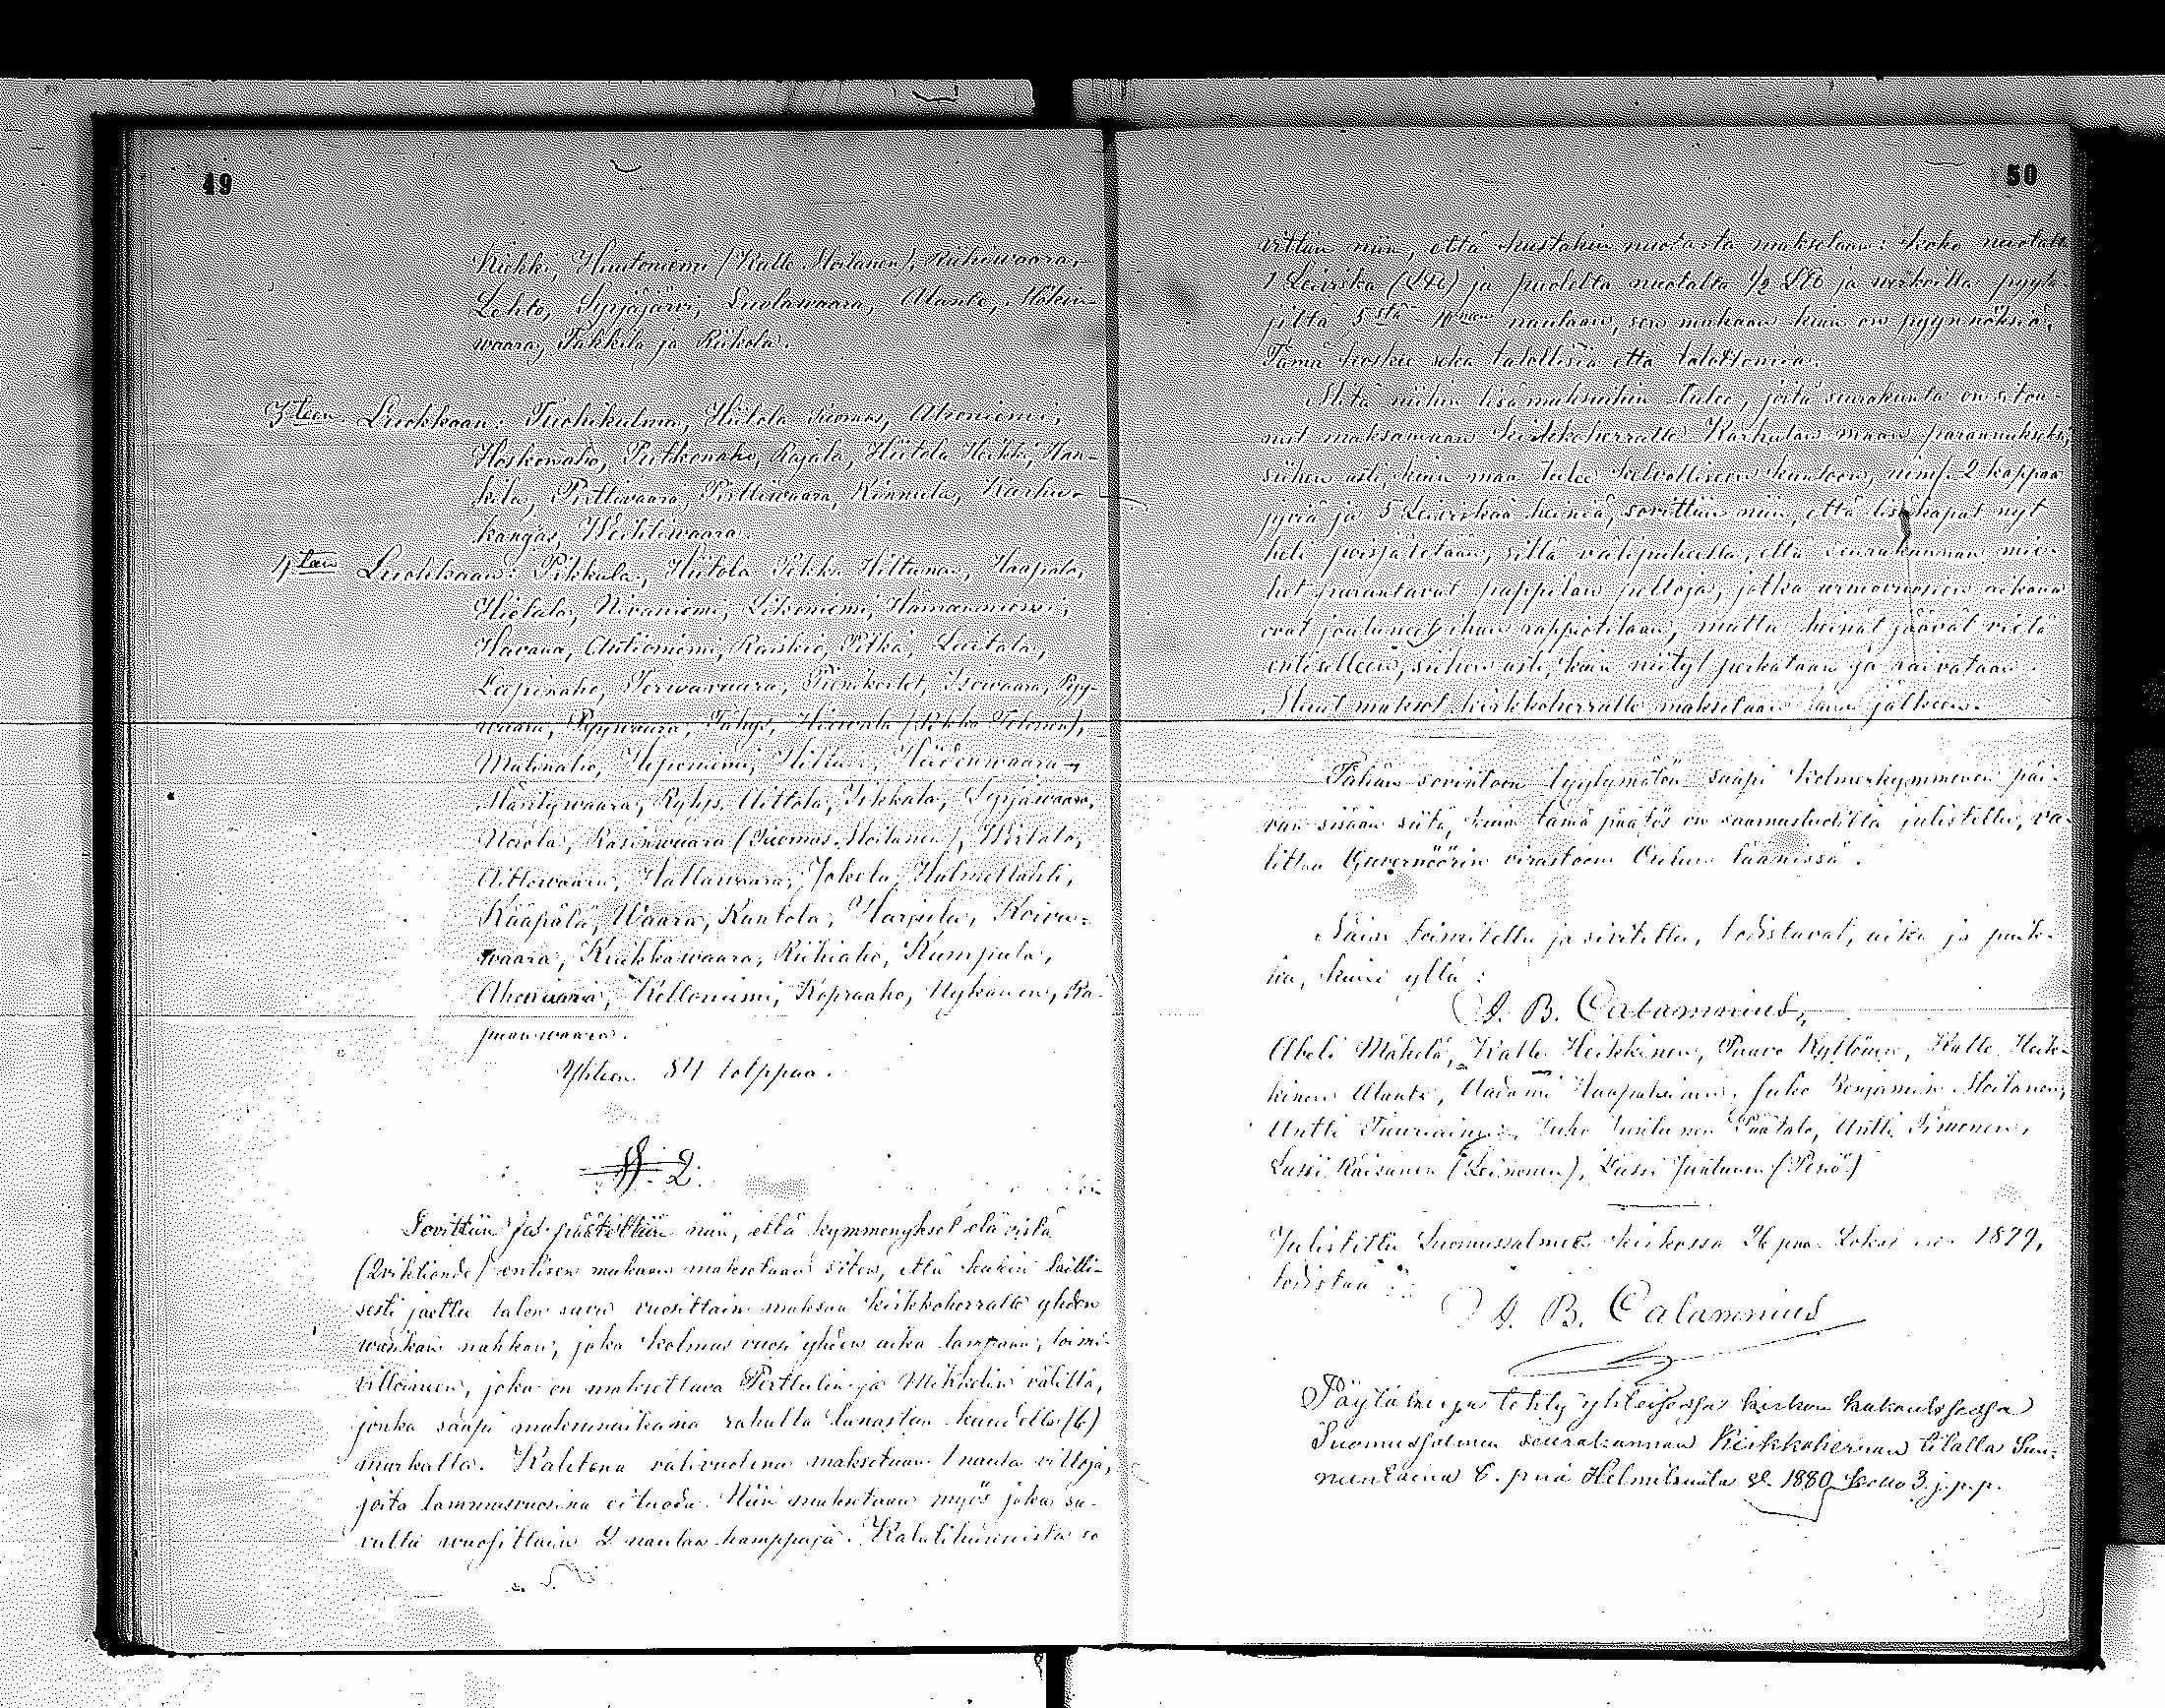 49
Kiekki, Huutoniemi (Kalle Moilanen), Riihiwaara,
Lehto, Syrjäjärvi, Luolawaara, Alanto, Mölkin-
waara, Takkila ja Riikola.
3teen Luokkaan: Tuohikulma, Hietola Tuomas, Ahoniemi,
Hoskonaho, Pietkonaho, Rajala, Hietola Heikki, Han-
kila, Pirttiwaara, Pirttiwaara, Rinniela, Karhu-
kangas, Wechtiwaara.
4teen Luokkaan: Pikkula, Hietola Pekka Hiltunen, Haapala,
Hietala, Nivaniemi, Litoniemi,
Havana, Anttioniemi, Raiskio, Pitkä, Lautala,
Leipinaho, Terwawaara, Isowaara, Pyy-
waara, Pyywaara, Tahys, (Pekka Tolonen),
Matinaho, Heponiemi, Hiidenwaara,
Mäntywaara, Kylys, Aittola, Pikkala, Syrjäwaara,
(Tuomas Moilanen), Wirtala,
Aittowaara, Hallawaara, Jokela, Halmetlahti,
Kääpälä, Waara, Rantola, Harjula, Koivu-
waara, Kuikkawaara, Riihiaho, Kumpula,
Ahowaara, Kelloniemi, Kopraaho, Nykänen, Ra-
puanwaara.
Yhteen 84 tolppaa.
§. 2.
Sovittiin ja päätettiin niin, että kymmenykset elävistä
(Qviktionde) entisen mukaan maksetaan siten, että kukin lailli-
sesti jaettu talon savu vuosittain maksaa kirkkoherralle yhden
wasikan nahkan, joka kolmas vuosi yhden aika lampaan, toimi-
villoinen, joka on maksettava Perttulin ja Mikkelin välillä,
jonka saapi maksunaikana rahalla lunastaa kuudella (6)
markalla. Kahtena välivuotena maksetaan 1 naula villoja,
joita lammasvuosina ei tuoda. Niin maksetaan myös joka sa-
vulta wuosittain 2 naulaa hamppuja. Kalulihinnista so
50
vittiin niin, että kustakin nuotasta maksetaan: koko nuotalta
1 Leiviskä (L℔) ja puolelta nuotalta 1/2 L℔ ja verkoilla pyytä-
jiltä 5stä 10neen naulaan, sen mukaan kuin on pyynnöksiä.
Tämä koskee sekä talollisia että talottomia.
Mitä niihin lisämaksuihin tulee, joita seurakunta on sitou-
nut maksamaan kirkkoherralle Karhulan maan parannukseksi,
siihen asti, kuin maa tulee kelvolliseen kuntoon, nimf. 2 kappaa
jyviä ja 5 Leiviskää heiniä, sovittiin niin, että lisäkapat nyt
heti poisjätetään, sillä välipuheella, että seurakunnan mie-
het parantavat pappilan peltoja, jotka armovuosien aikana
ovat joutuneet ihan rappiotilaan, mutta heinät jäävät vielä
entiselleen, siihen asti, kuin niityt perkataan ja raivataan.
Muut maksot kirkkoherralle maksetaan lain jälkeen.
Tähän sovintoon tyytymätön saapi kolmenkymmenen päi-
vän sisään siitä, kuin tämä päätös on saarnastuolilta julistettu, va-
littaa Guvernöörin virastoon Oulun läänissä.
Näin toimitettu ja sivitettu, todistavat, aika ja paik-
ka, kuin yllä:
J. B. Calamnius,
Abeli Mähelä, Kalle Heikkinen, Paavo Kyllönen, Kalle Heik-
kinen Alanto, Aadami Haapalainen, Juho Benjamin Moilanen,
Antti Tauriainen, Juho Juntunen Päätalo, Antti Timonen,
Lassi Räisänen (Leinonen), Lassi Juntunen (Pesiö)
Julistettu Suomussalmen kirkossa 26 pnä Lokak 1879,
todistaa:
J. B. Calamnius
Pöytäkirja tehty yhteisessä kirkon kokouksessa
Suomussalmen seurakunnan Kirkkoherran tilalla Sun-
nuntaina 8. pnä Helmikuuta v. 1880 kello 3. j.p.p.